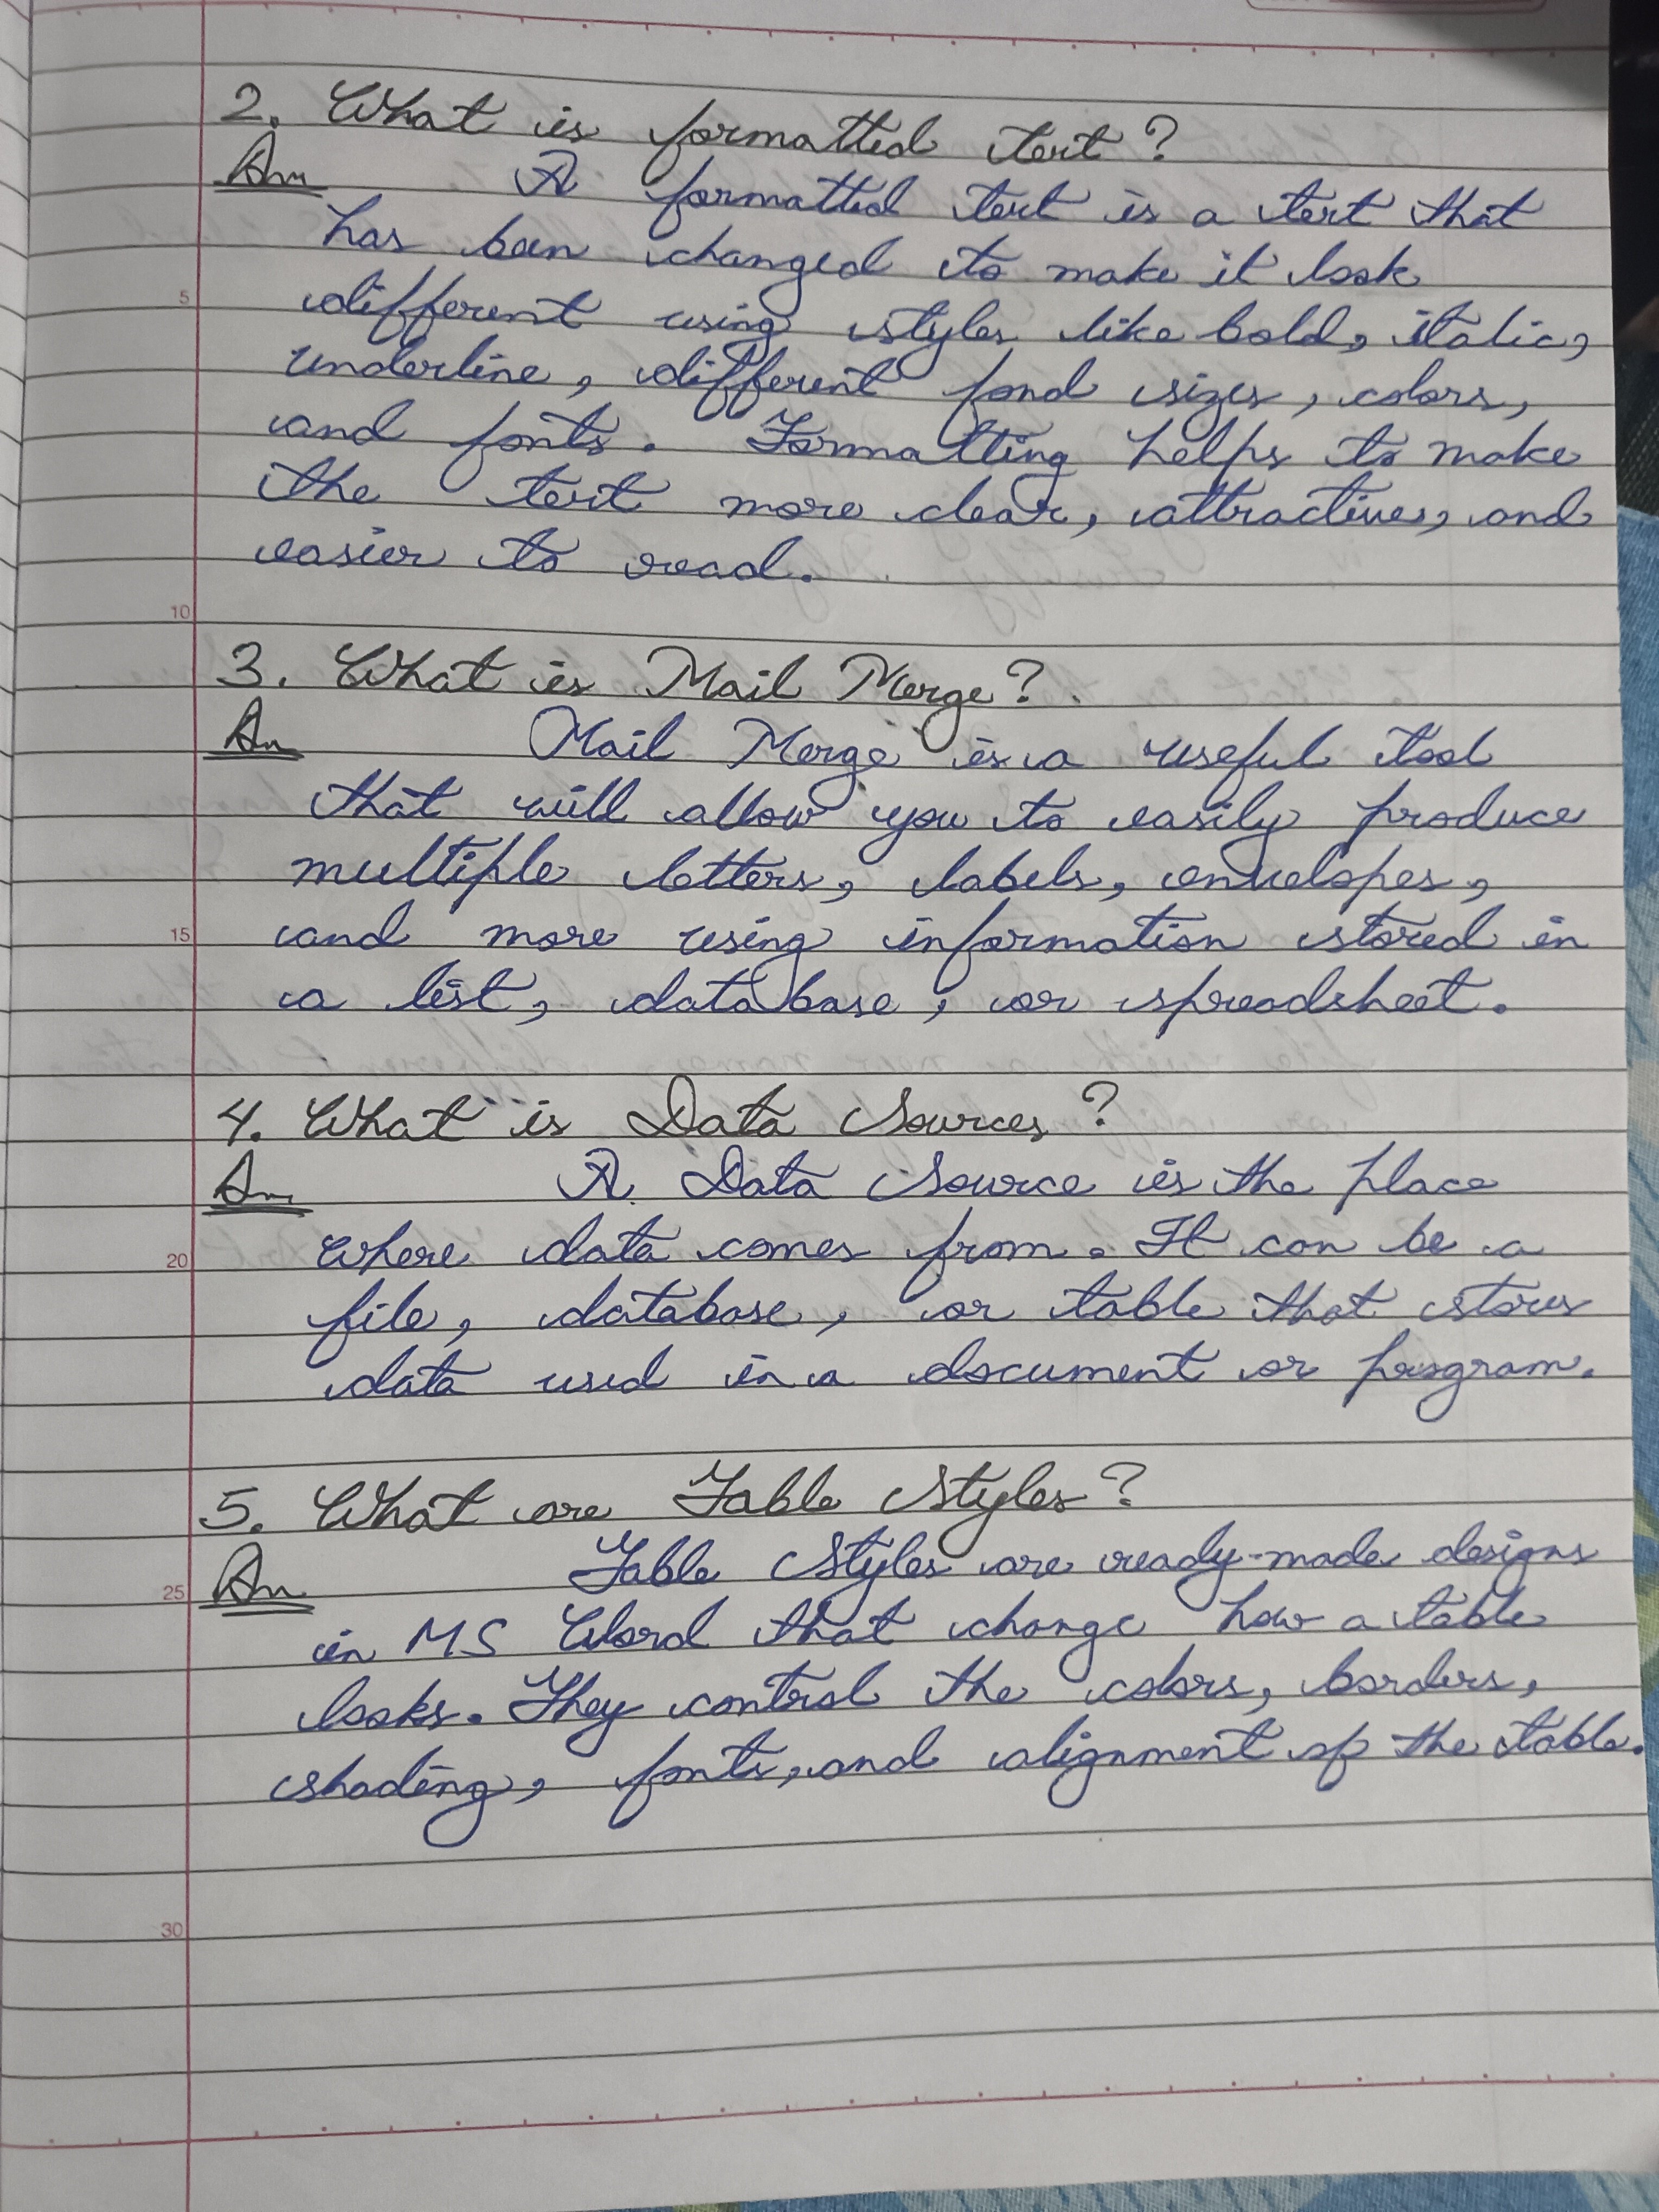 2. What is formatted text?
Ans A formatted text is a text that
has been changed to make it look
5 different using styles like bold, italic,
underline, different fond sizes, colors,
and fonts. Formatting helps to make
the text more clear, attractive, and
easier to read.
10
3. What is Mail Merge?
Ans Mail Merge is a useful tool
that will allow you to easily produce
multiple letters, labels, envelopes,
15 and more using information stored in
a list, database, or spreadsheet.
4. What is Data Sources?
Ans A Data Source is the place
20 where data comes from. It can be a
file, database, or table that stores
data used in a document or program.
5. What are Table Styles?
25 Ans Table Styles are ready-made designs
in MS Word that change how a table
looks. They control the colors, borders,
shading, fonts, and alignment of the table.
30